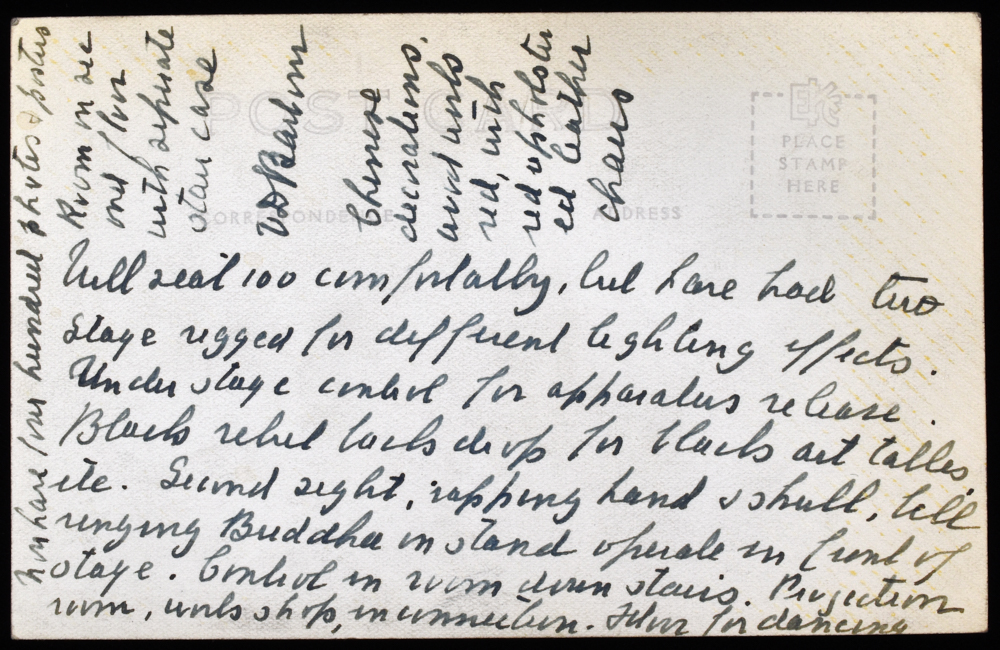 POST CARD
CORRESPONDENCE
ADDRESS
EKC
PLACE
STAMP
HERE
Will seat 100 comfortably, but have had two
stage rigged for different lighting effects.
Under stage control for apparatus release.
Black velvet back drop for black art tables,
etc. Second sight, rapping hand & skull, bell
ringing Buddha on stand operate in front of
stage. Control in room down stairs. Projection
room, work shop, in connection. Floor for dancing
Now have four hundred photos & posters
Room on sec
ond floor
with separate
stair case
Chinese
decorations.
wood work
red, with
red upholster
ed leather
chairs